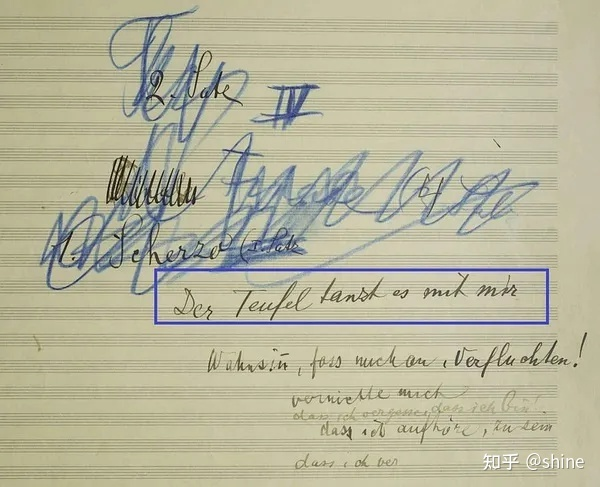 2. Satz
IV
1. Scherzo (I. Satz
Der Teufel tanzt es mit mir
Wahnsin̄, fass mich an, Verfluchten!
vernichte mich
dass ich vergesse, dass ich bin!
dass ich aufhöre, zu sein
dass ich ver
知乎 @shine